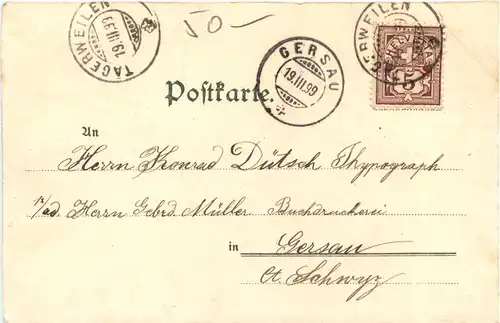 50-
TAGERWEILEN
19.III.99
GERSAU
19.III.99
TAGERWEILEN
5
Postkarte.
An
Herrn Konrad Dütsch Thypograph
p/ad. Herrn Gebrd. Müller Buchdruckerei
in Gersau
Ct. Schwyz